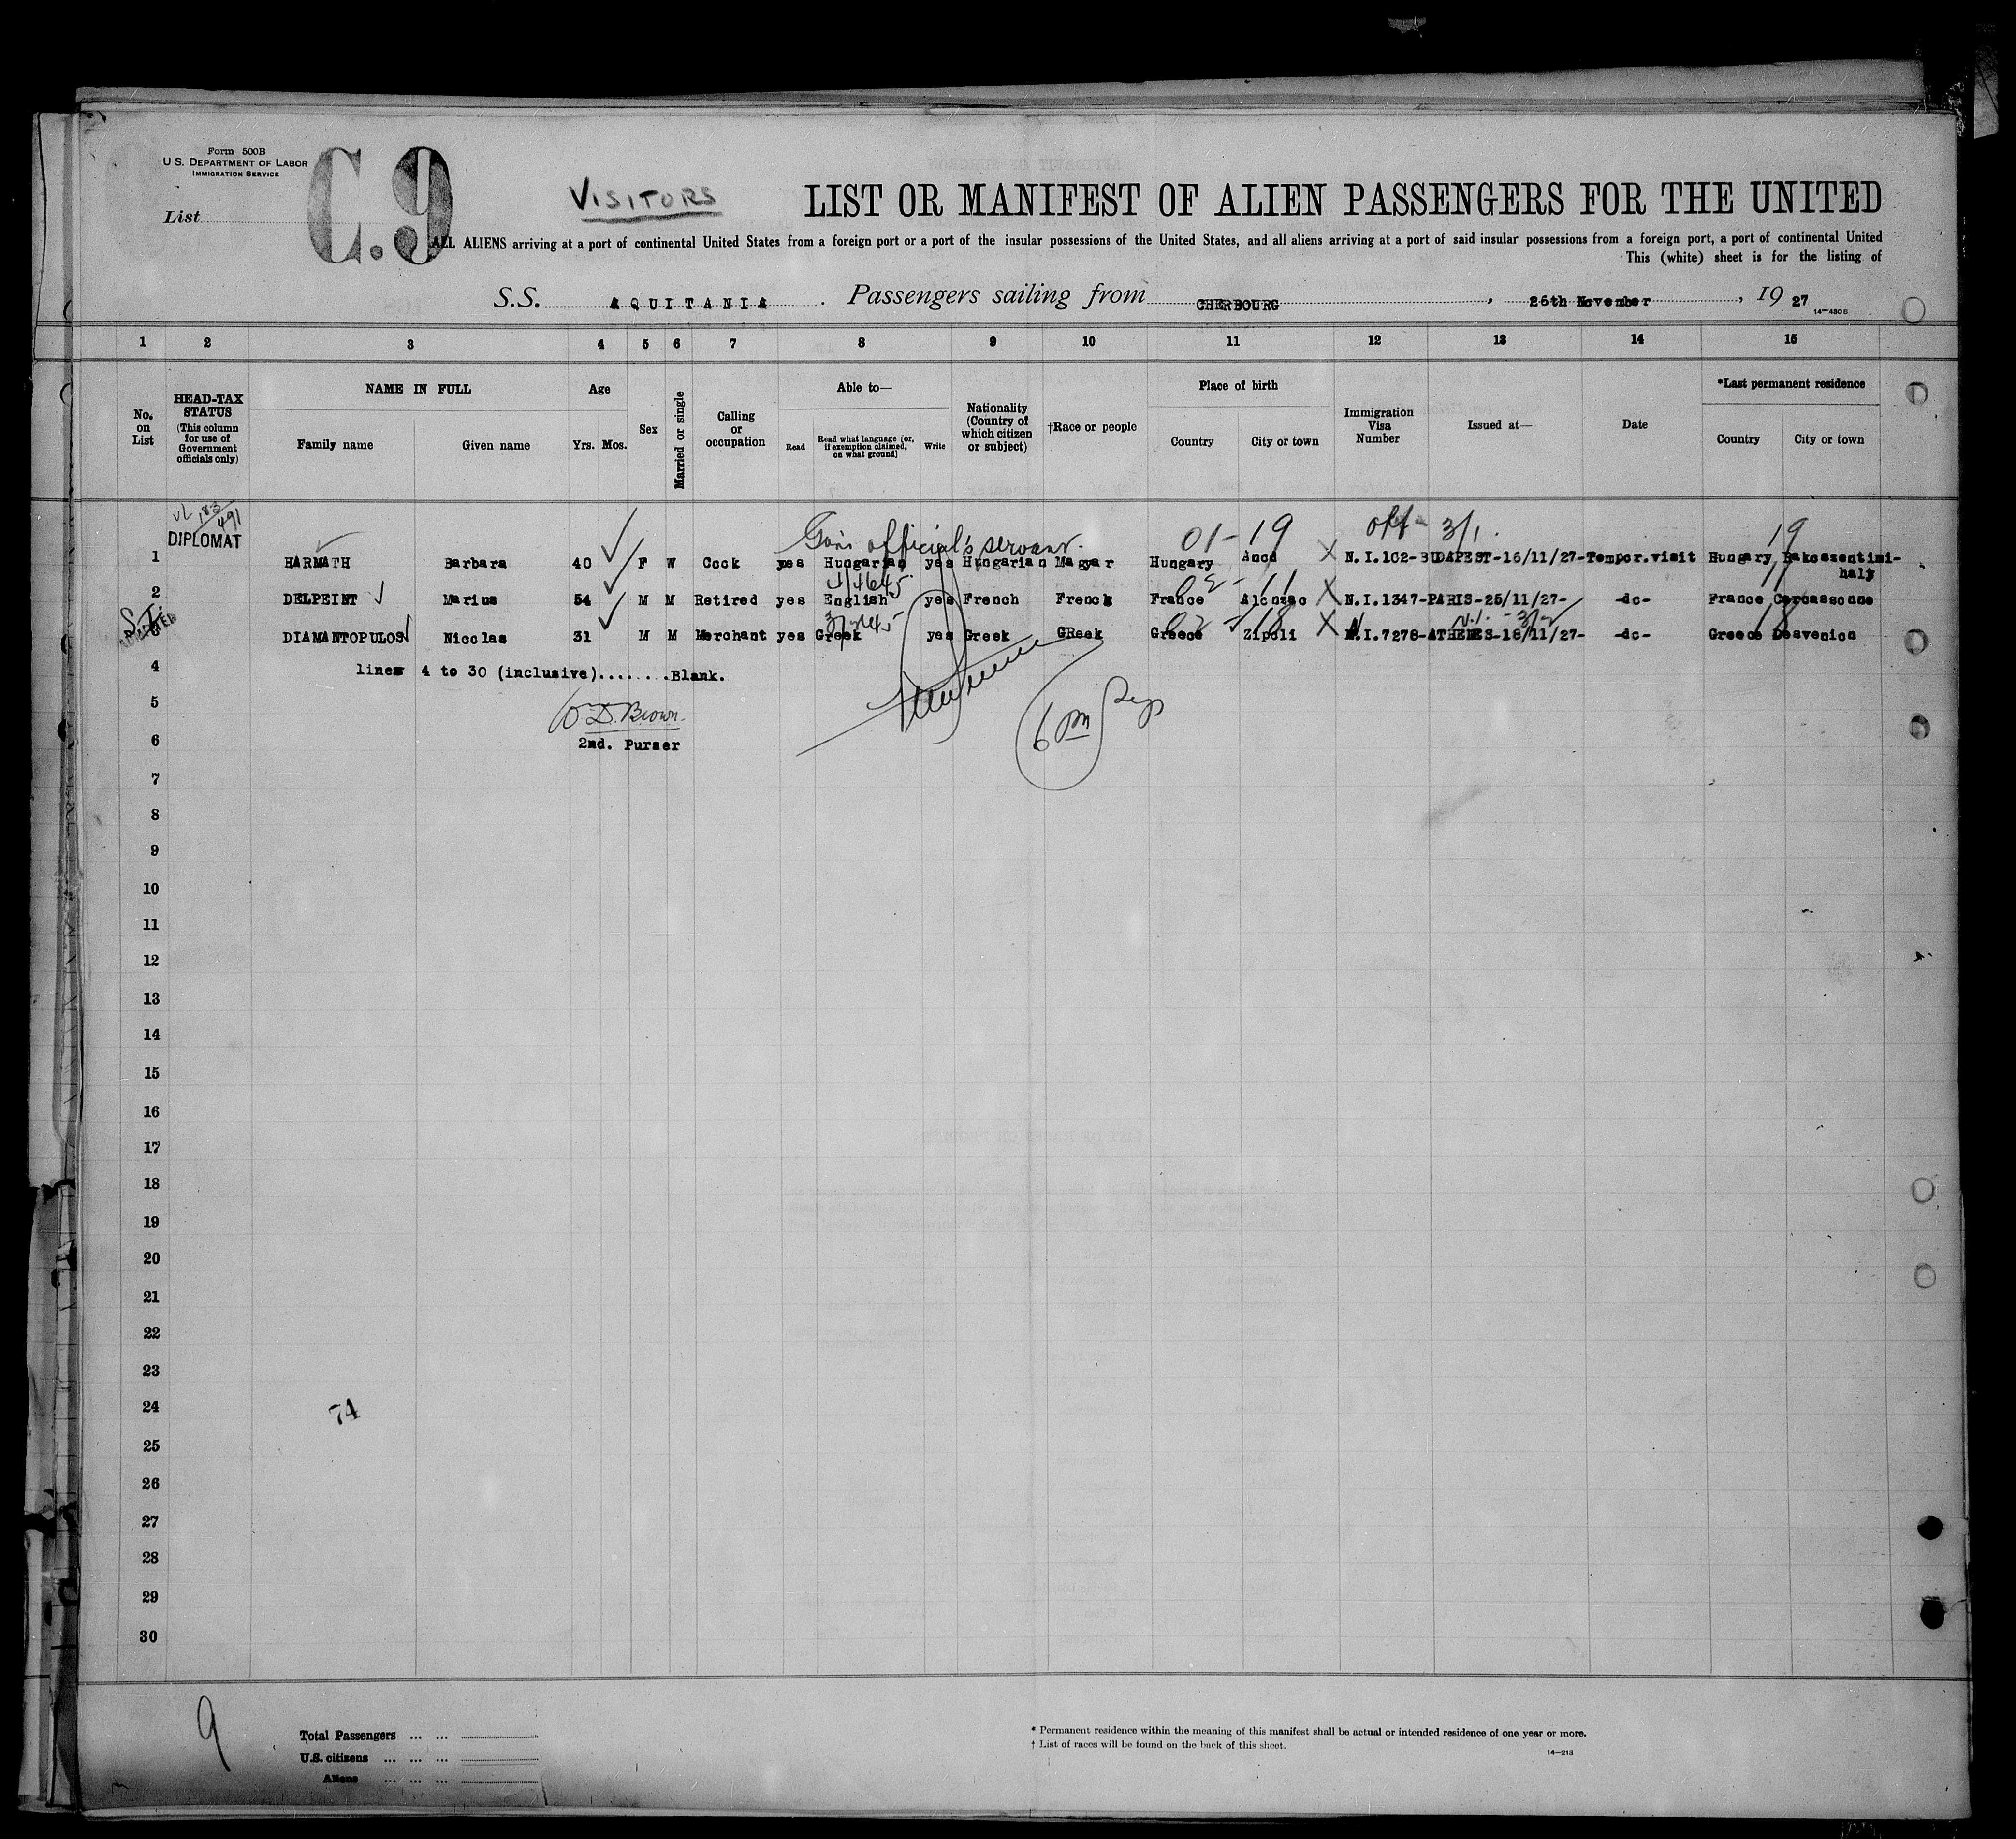 Form 500B
U. S. DEPARTMENT OF LABOR
IMMIGRATION SERVICE
C.9
List
VISITORS
LIST OR MANIFEST OF ALIEN PASSENGERS FOR THE UNITED
ALL ALIENS arriving at a port of continental United States from a foreign port or a port of the insular possessions of the United States, and all aliens arriving at a port of said insular possessions from a foreign port, a port of continental United
This (white) sheet is for the listing of
S.S. AQUITANIA . Passengers sailing from CHERBOURG , 26th November , 19 27
14—430B
1 2 3 4 5 6 7 8 9 10 11 12 13 14 15
No. on List
HEAD-TAX STATUS (This column for use of Government officials only)
NAME IN FULL
Family name Given name
Age
Yrs. Mos.
Sex
Married or single
Calling or occupation
Able to—
Read Read what language [or, if exemption claimed, on what ground] Write
Nationality (Country of which citizen or subject)
†Race or people
Place of birth
Country City or town
Immigration Visa Number
Issued at—
Date
*Last permanent residence
Country City or town
183/491
DIPLOMAT
Gov. official's servant. 01-19 3/1. 19
1 HARMATH Barbara 40 F W Cook yes Hungarian yes Hungarian Magyar Hungary X N.I.102-BUDAPEST-16/11/27-Tempor.visit Hungary Rakosszentmi-
haly
02-11 11
2 DELPEINT Marius 54 M M Retired yes English yes French French France Alonzac X N.I.1347-PARIS-25/11/27- -do- France Carcassonne
S.I.
ADMITTED
02-18 18
3 DIAMANTOPULOS Nicolas 31 M M Merchant yes Greek yes Greek GReek Greece Zipoli X N.I.7278-ATHENES-18/11/27- -do- Greece Desvenion
4 lines 4 to 30 (inclusive)........Blank.
5
D. Brown.
6 2nd. Purser
6 pm
7
8
9
10
11
12
13
14
15
16
17
18
19
20
21
22
23
24
74
25
26
27
28
29
30
9
Total Passengers ... ...
U.S. citizens ... ... ...
Aliens ... ... ...
* Permanent residence within the meaning of this manifest shall be actual or intended residence of one year or more.
† List of races will be found on the back of this sheet.
14—213